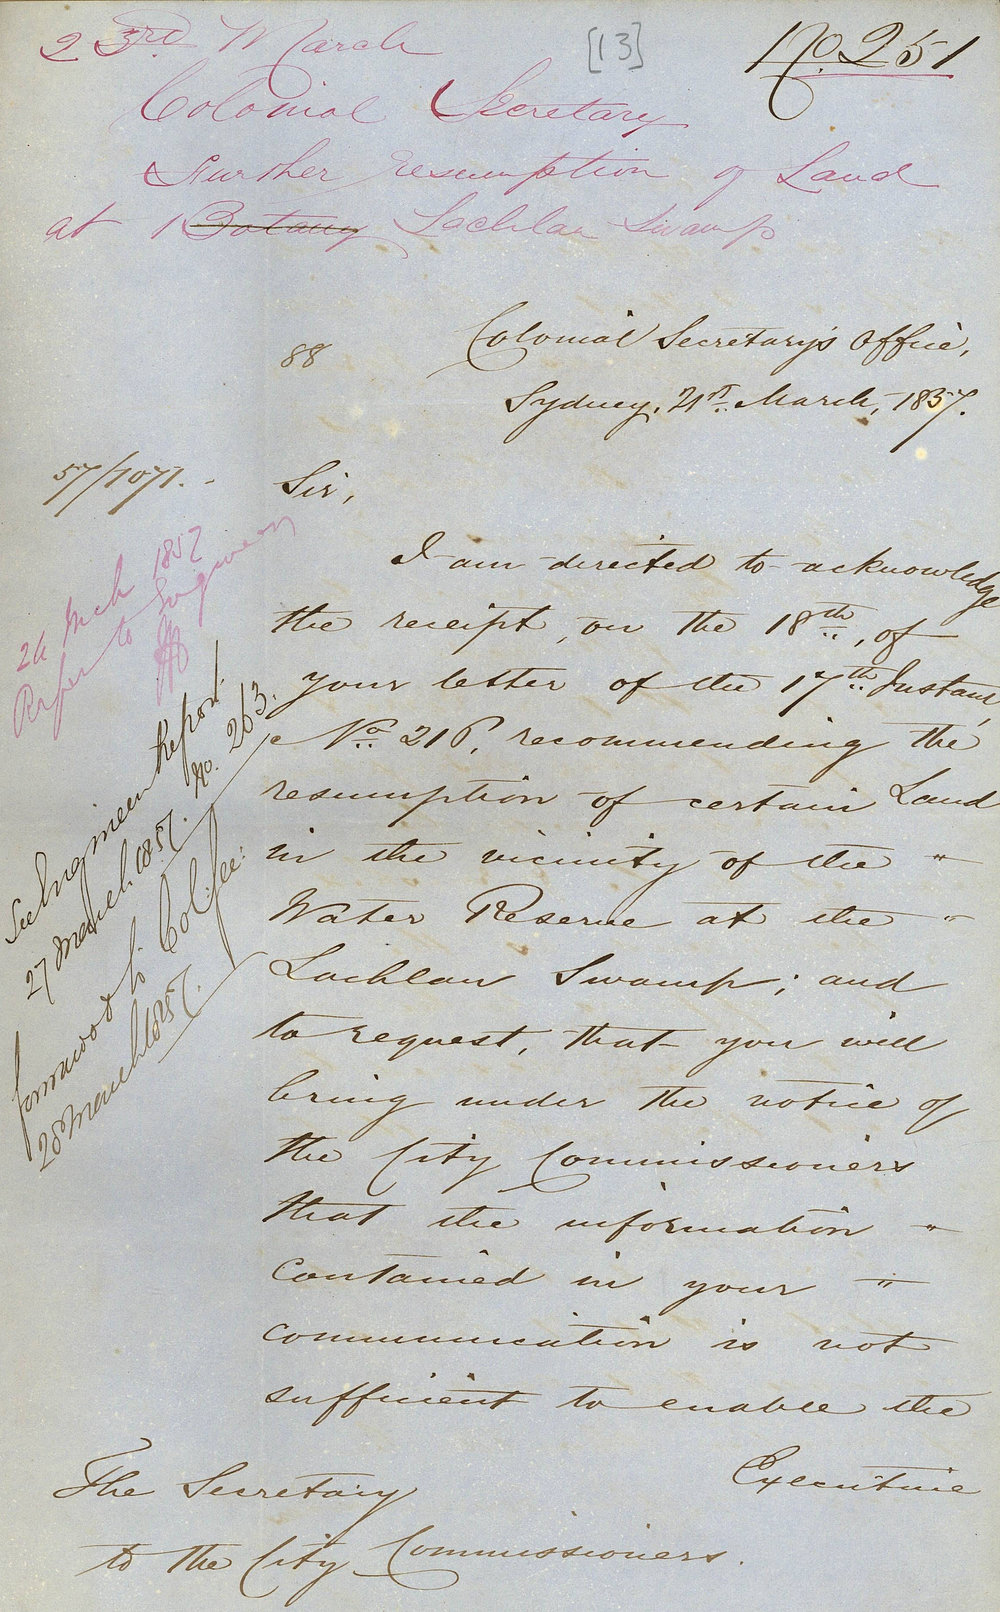 23rd March
[13]
No. 251
Colonial Secretary
Further resumption of Land
at Botany Lachlan Swamp
88
Colonial Secretary's Office,
Sydney, 21st. March, 1857.
57/1071.
Sir,
I am directed to acknowledge
the receipt, on the 18th., of
your letter of the 17th. Instant,
No. 216, recommending the
resumption of certain Land
in the vicinity of the "
Water Reserve at the "
Lachlan Swamp; and
to request, that you will
bring under the notice of
the City Commissioners
that the information "
contained in your "
communication is not
sufficient to enable the
Executive
The Secretary
to the City Commissioners.
24 Mch 1857
Refer to Engineer
See Engineer Report
27 March 1857. No. 263.
forwarded to Col: Sec:
28 March 1857.